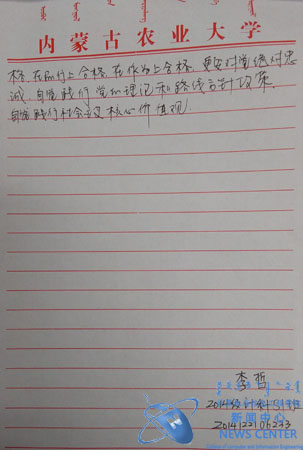 内蒙古农业大学
格,在品行上合格,在作为上合格,更要对党绝对忠
诚,自觉践行党的理论和路线方针政策,
自觉践行社会主义核心价值观
李哲
2014
新闻中心
NEWS CENTER